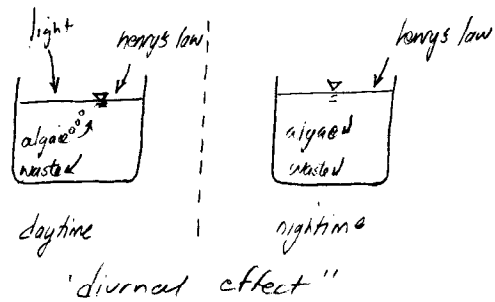 light
henry's law
algae
waste
daytime
henry's law
algae
waste
nightime
"diurnal effect"